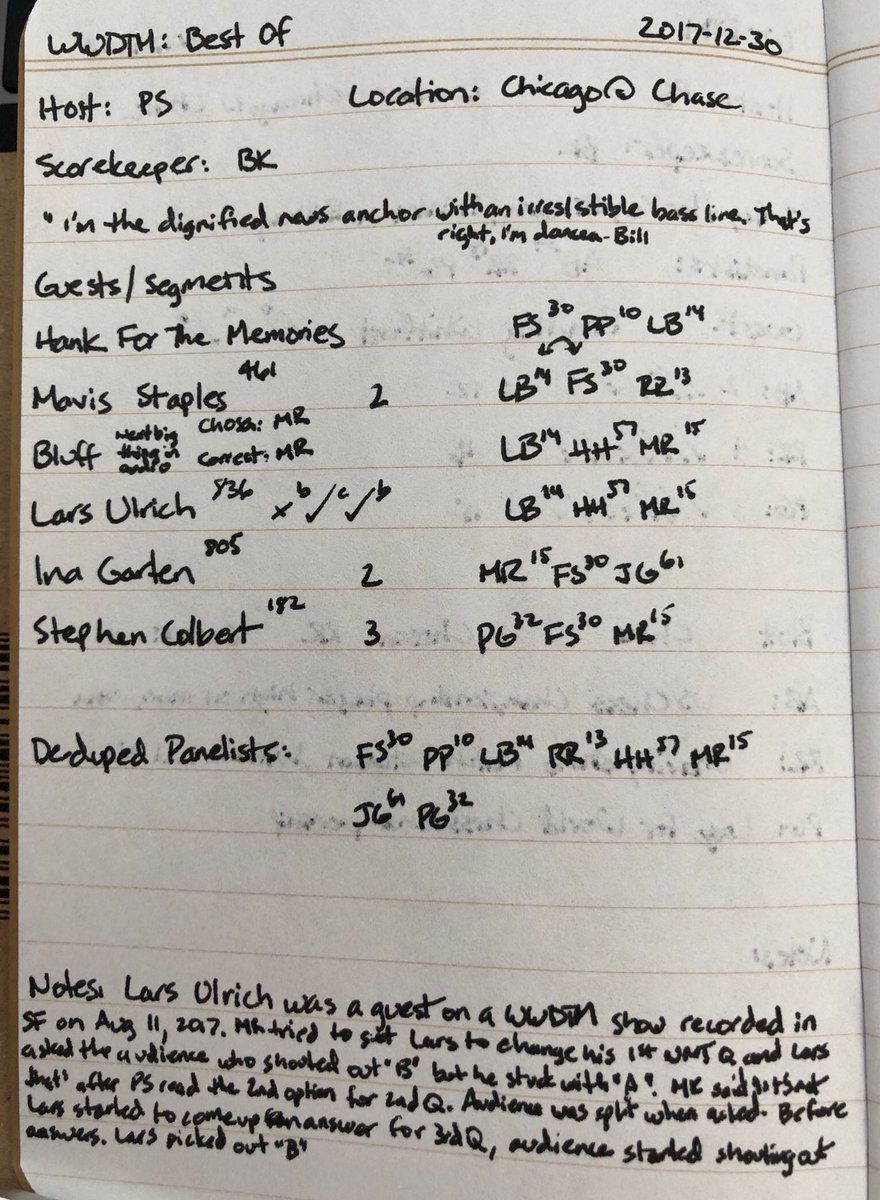 WWDTM: Best Of 2017-12-30
Host: PS Location: Chicago @ Chase
Scorekeeper: BK
"I'm the dignified news anchor with an irresistible bass line. That's
right, I'm dancen - Bill
Guests/Segments
Hank For The Memories FS30 PP10 LB14
Mavis Staples 461 2 LB14 FS30 RR13
Bluff next big thing in audio Chosen: MR Correct: MR LB14 HH57 MR15
Lars Ulrich 836 x b ✓ c ✓ b LB14 HH57 MR15
Ina Garten 805 2 MR15 FS30 JG61
Stephen Colbert 182 3 PG32 FS30 MR15
Deduped Panelists: FS30 PP10 LB14 RR13 HH57 MR15
JG61 PG32
Notes: Lars Ulrich was a guest on a WWDTM show recorded in
SF on Aug 11, 2017. MR tried to get Lars to change his 1st NMJ Q and Lars
asked the audience who shouted out "B" but he stuck with "A". MR said "it's not
that" after PS read the 2nd option for 2nd Q. Audience was split when asked. Before
Lars started to come up an answer for 3rd Q, audience started shouting out
answers. Lars picked out "B"